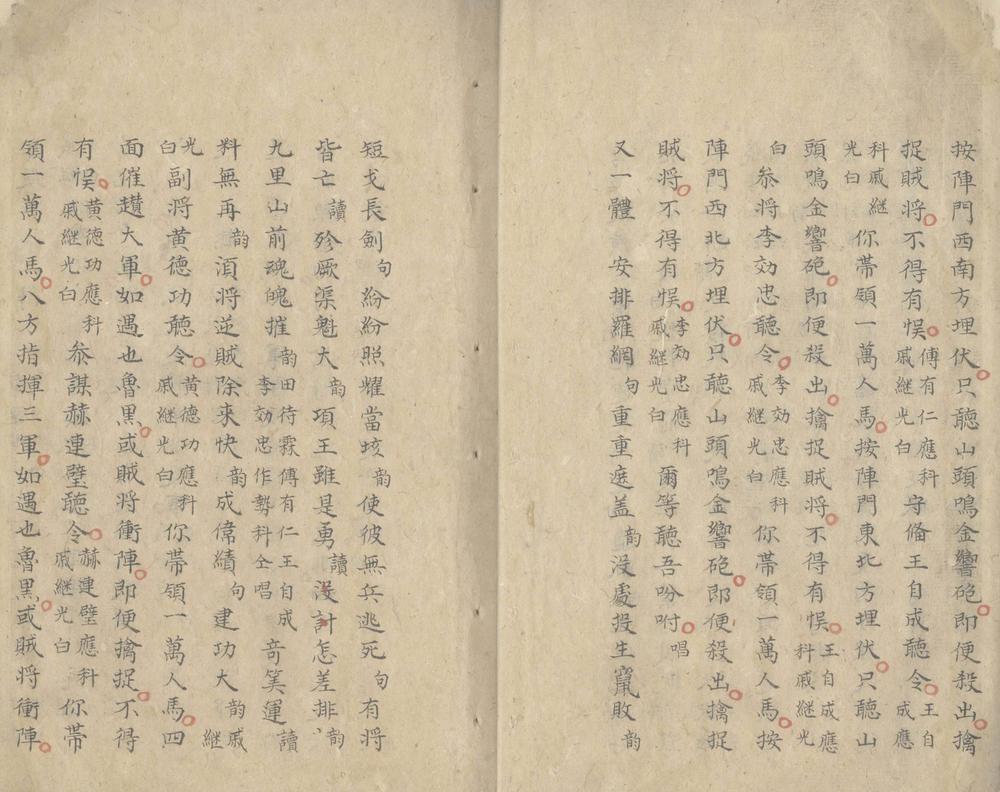 按陣門西南方埋伏只聽山頭鳴金響砲即便殺出擒
捉賊將不得有悮傅有仁應科戚繼光白守俻王自成聽令王自成應
科戚繼光白你帯領一萬人馬按陣門東北方埋伏只聽山
頭鳴金響砲即便殺出擒捉賊將不得有悮王自成應科戚繼光
白叅將李効忠聽令李効忠應科戚繼光白你帯領一萬人馬按
陣門西北方埋伏只聽山頭鳴金響砲即便殺出擒捉
賊將不得有悮李効忠應科戚繼光白爾等聽吾吩咐唱
又一體安排羅網句重重遮盖韵没處投生竄敗韵
短戈長劍句紛紛照耀當垓韵使彼無兵逃死句有將
皆亡讀殄厥渠魁大韵項王雖是勇讀没計怎差排韵
九里山前魂魄摧韵田待霖傅有仁王自成李効忠作勢科仝唱竒筭運讀
料無再韵湏將逆賊除来快韵成偉績句建功大韵戚繼
光白副將黄德功聽令黄德功應科戚繼光白你帯領一萬人馬四
面催趲大軍如遇也魯黒或賊將衝陣即便擒捉不得
有悮黄德功應科戚繼光白叅謀赫連璧聽令赫連璧應科戚繼光白你帯
領一萬人馬八方指揮三軍如遇也魯黒或賊將衝陣